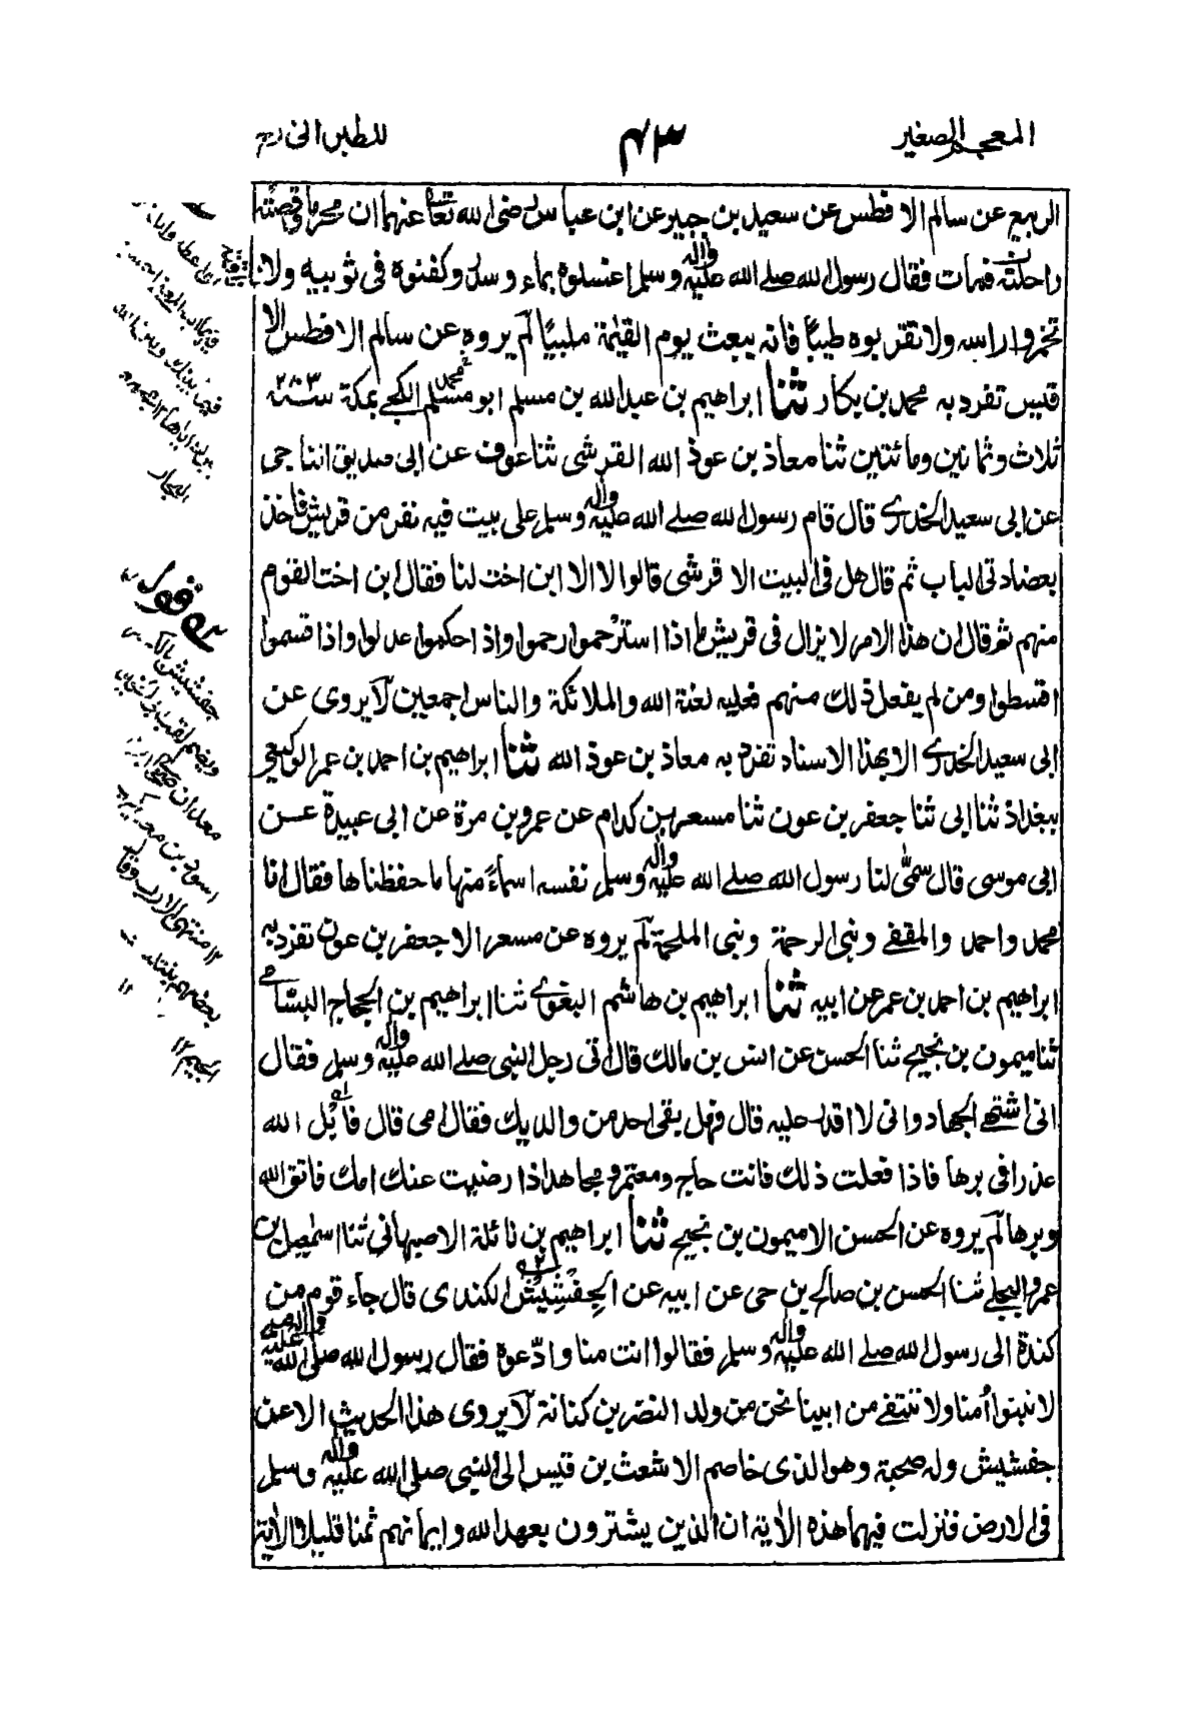 المعجم الصغير
٤٣
للطبرانی رح
الربيع عن سالم الافطس عن سعيد بن جبير عن ابن عباس رضی الله تعا عنهما ان محرما وقصته
راحلته فمات فقال رسول الله صلے الله عليه واٰله وسلم اغسلوه بماء وسدر وكفنوه فی ثوبيه ولا
تخمروا راسه ولا تقربوه طيبًا فانه يبعث يوم القيٰمة ملبيًا لم يروه عن سالم الافطس الا
قيس تفرد به محمد بن بكار ثنا ابراهيم بن عبد الله بن مسلم ابو مسلم الكجے بمكة سنة ٢٨٣
ثلاث وثمانين ومائتين ثنا معاذ بن عوذ الله القرشی ثنا عوف عن ابی صديق الناجی
عن ابی سعيد الخدرے قال قام رسول الله صلے الله عليه واٰله وسلم علی بيت فيه نفر من قريش فاخذ
بعضادتی الباب ثم قال هل فی البيت الا قرشی قالوا لا الا ابن اخت لنا فقال ابن اخت القوم
منهم ثم قال ان هذا الامر لا يزال فی قريش ما اذا استرحموا رحموا واذ احكموا عدلوا واذا قسموا
اقسطوا ومن لم يفعل ذلك منهم فعليه لعنة الله والملائكة والناس اجمعين لا يروی عن
ابی سعيد الخدرے الا بهذا الاسناد تفرد به معاذ بن عوذ الله ثنا ابراهيم بن احمد بن عمر الوكيعی
ببغداذ ثنا ابی ثنا جعفر بن عون ثنا مسعر بن كدام عن عمرو بن مرة عن ابی عبيدة عن
ابی موسی قال سمّٰی لنا رسول الله صلے الله عليه واٰله وسلم نفسه اسماءً منها ما حفظناها فقال انا
محمد واحمد والمقفے ونبی الرحمة ونبی الملحمة لم يروه عن مسعر الا جعفر بن عون تفرد به
ابراهيم بن احمد بن عمر عن ابيه ثنا ابراهيم بن هاشم البغوے ثنا ابراهيم بن الحجاج السامے
ثنا ميمون بن نجيح ثنا الحسن عن انس بن مالك قال اتی رجل النبی صلے الله عليه واٰله وسلم فقال
انی اشتهے الجهاد وانی لا اقدر عليه قال فهل بقی احد من والديك فقال امی قال فابل الله
عذرا فی برها فاذا فعلت ذلك فانت حاج ومعتمر ومجاهد اذا رضيت عنك امك فاتق الله
وبرها لم يروه عن الحسن الا ميمون بن نجيح ثنا ابراهيم بن نائلة الاصبهانی ثنا اسمٰعيل بن
عمرو البجلے ثنا الحسن بن صالح بن حی عن ابيه عن الجِفْشِيْش الكندی قال جاء قوم من
كندة الی رسول الله صلے الله عليه واٰله وسلم فقالوا انت منا وادّعوه فقال رسول الله صلی الله عليه واٰله وسلم
لا ننبتوا اُمنا ولا ننتفے من ابينا نحن من ولد النضر بن كنانة لا يروی هذا الحديث الا عن
جفشيش وله صحبة وهو الذی خاصم الاشعث بن قيس الی النبی صلی الله عليه واٰله وسلم
فی الارض فنزلت فيهما هذه الاٰية ان الذين يشترون بعهد الله وايمانهم ثمنا قليلا الاٰية
قوله
جفشيش بالكسر
ويضم لقب
معدان
اسود بن معديكرب
١٢ منتهی الارب